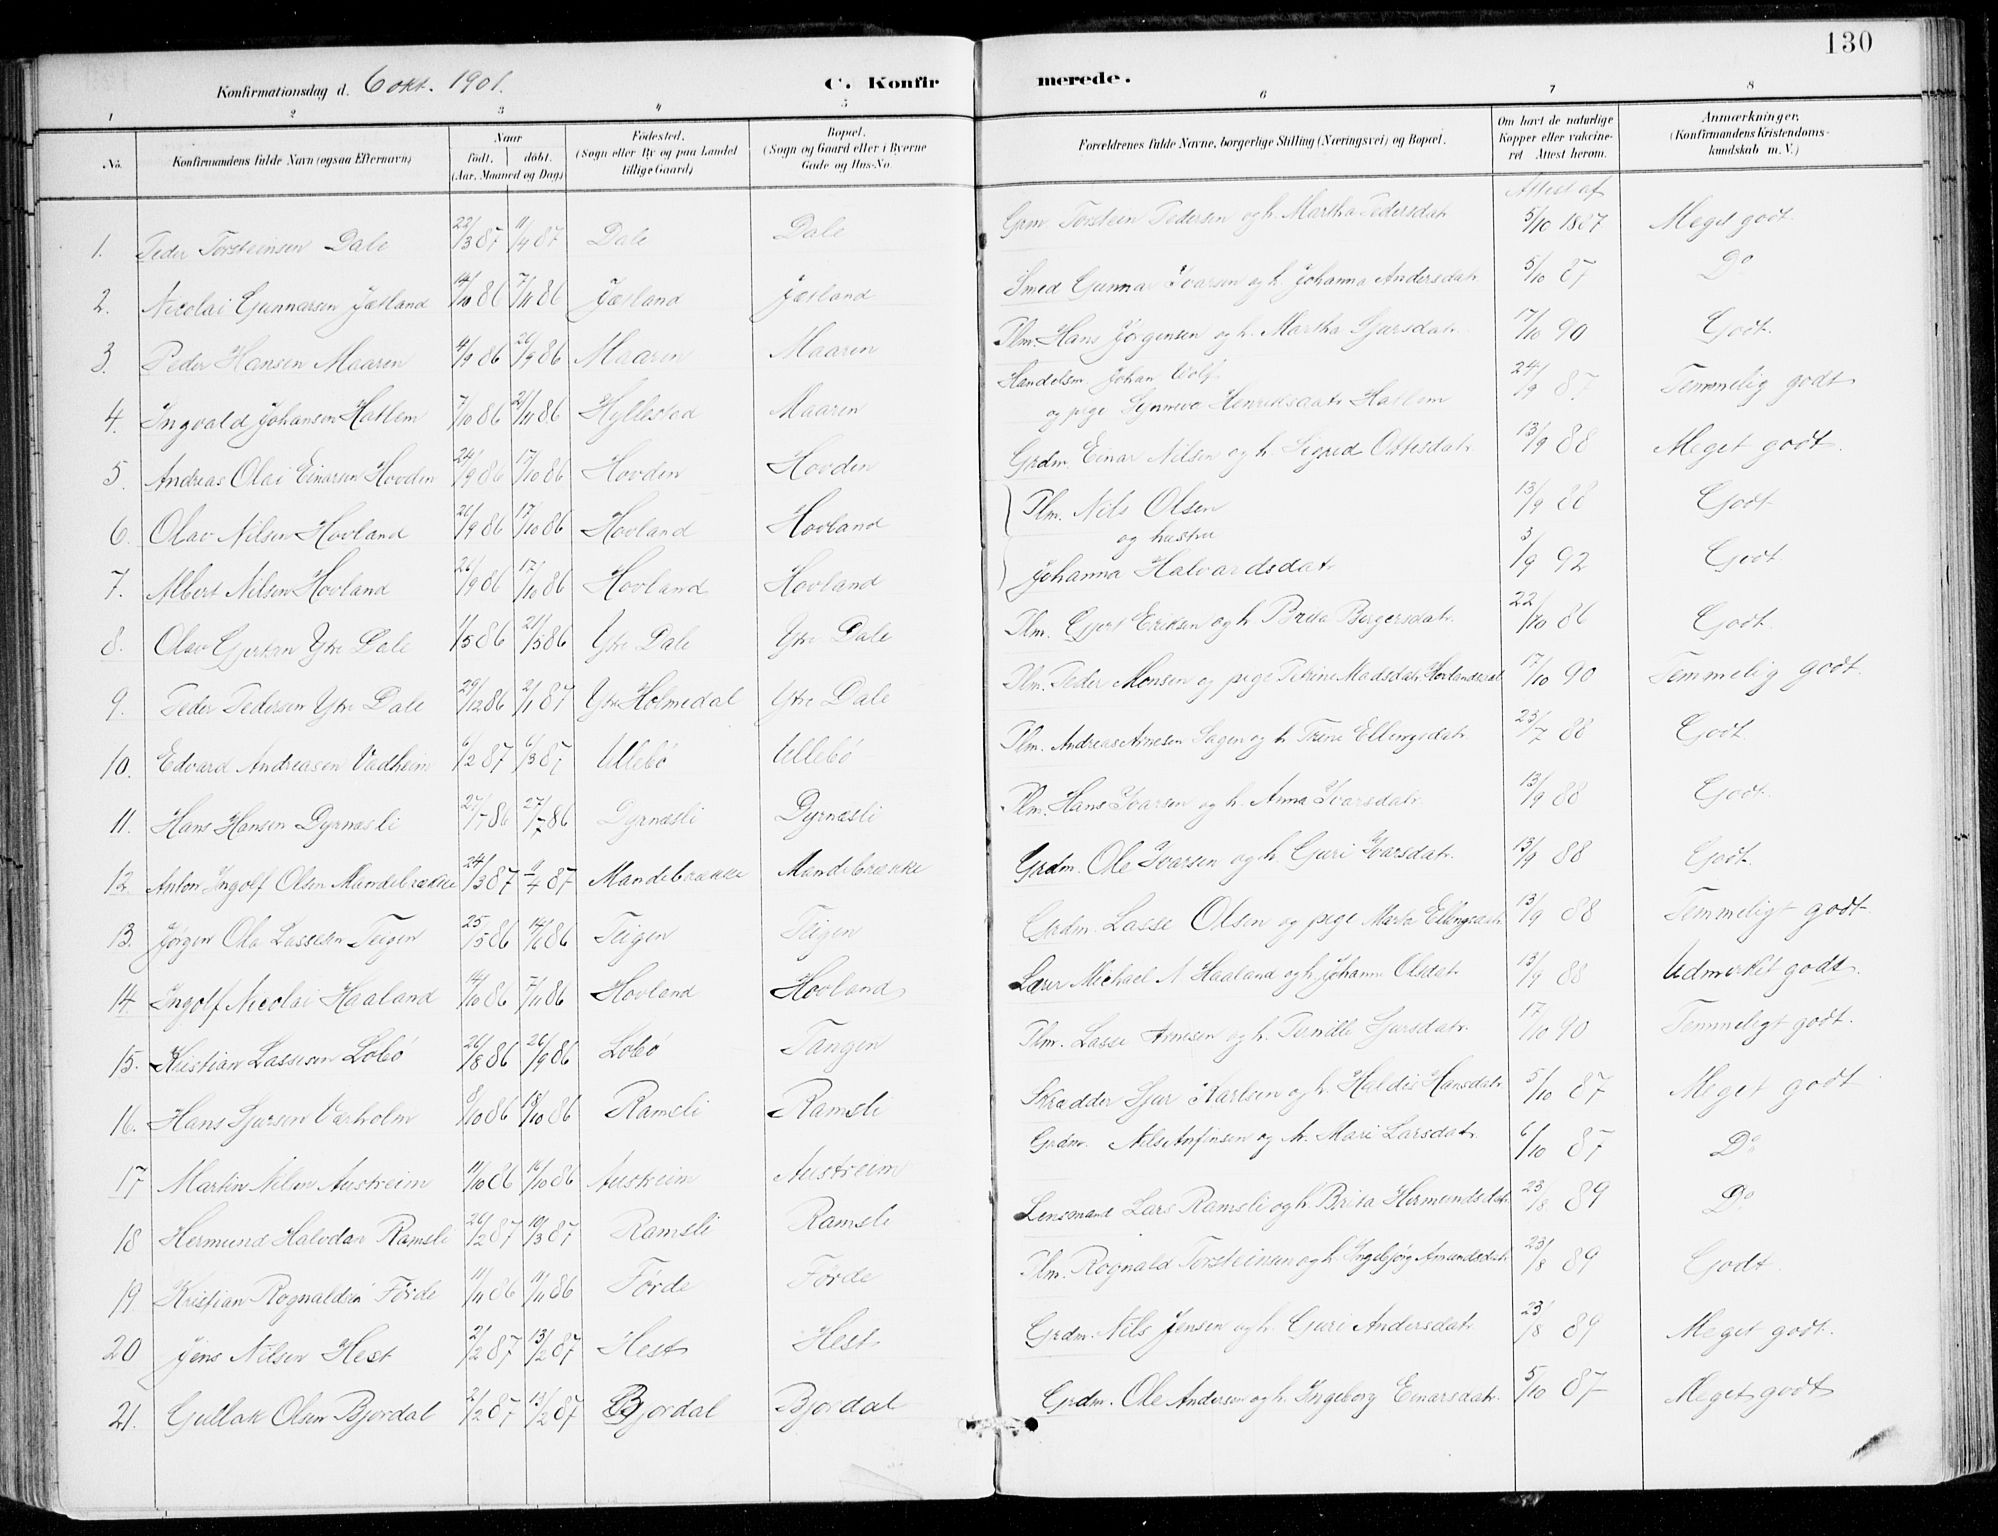 130
Konfirmationsdag d. 6 okt. 1901. C. Konfirmerede.
1 2 3 4 5 6 7 8
No. Konfirmandens fulde Navn (ogsaa Efternavn) Naar født, døbt. (Aar, Maaned og Dag) Fødested. (Sogn eller By og paa Landet tillige Gaard) Bopæl. (Sogn og Gaard eller i Byerne Gade og Hus-No. Forældrenes fulde Navne, borgerlige Stilling (Næringsvei) og Bopæl. Om havt de naturlige Kopper eller vakcineret. Attest herom. Anmærkninger, (Konfirmandens Kristendomskundskab m. V.)
Attest af
1. Peder Torsteinsen Dale 22/3 87 11/4 87 Dale Dale Grm Torstein Pedersen og h. Martha Pedersdatr 5/10 1887 Meget godt.
2. Nicolai Gunnarsen Jætland 14/10 86 7/11 86 Jætland Jætland Smed Gunnar Ivarsen og h. Johanna Andersdatr 5/10 87 Do
3. Peder Hansen Maaren 4/9 86 26/9 86 Maaren Maaren Plm. Hans Jørgensen og h. Martha Sjursdatr 17/10 90 Godt.
4. Ingvald Johansen Hatlem 7/10 86 21/11 86 Hyllested Maaren Handelsm. Johan Wolf og pige Synneve Henriksdatr Hatlem 24/9 87 Temmelig godt
5. Andreas Olai Einarsen Hovden 24/9 86 17/10 86 Hovden Hovden Grdm. Einar Nilsen og h. Sigrid Ottesdatr 13/9 88 Meget godt.
6. Olav Nilsen Hovland 26/9 86 17/10 86 Hovland Hovland Plm. Nils Olsen 13/9 88 Godt
og hustru
7. Albert Nilsen Hovland 26/9 86 17/10 86 Hovland Hovland Johanna Halvardsdatr 3/9 92 Godt
8. Olav Gjertsen Ytre Dale 1/5 86 21/5 86 Ytre Dale Ytre Dale Plm. Gjert Eriksen og h. Brita Borgersdatr 22/10 86 Godt.
9. Peder Pedersen Ytre Dale 29/12 86 2/1 87 Ytre Holmedal Ytre Dale Plm. Peder Monsen og pige Petrine Madsdatr Hovlandsdal 17/10 90 Temmelig godt.
10. Edvard Andreasen Vadheim 6/2 87 6/3 87 Ullebø Ullebø Plm. Andreas Arnesen Hagen og h. Trine Ellingsdatr 23/7 88 Godt.
11. Hans Hansen Dyrnæsli 27/7 86 27/7 86 Dyrnæsli Dyrnæsli Plm. Hans Ivarsen og h. Anna Ivarsdatr 13/9 88 Godt.
12. Anton Ingolf Olsen Mundebrække 24/3 87 11/4 87 Mandebrække Mundebrække Grdm. Ole Ivarsen og h. Guri Ivarsdatr 13/9 88 Godt.
13. Jørgen Ola Lassesen Teigen 25/5 86 14/6 86 Teigen Teigen Grdm. Lasse Olsen og pige Marta Ellingsdatr 13/9 88 Temmeligt godt
14. Ingolf Nicolai Haaland 14/10 86 7/11 86 Hovland Hovland Lærer Michael N Haaland og h. Johanne Olsdatr 13/9 88 Udmerket godt.
15. Kristian Lassesen Lobø 26/8 86 26/9 86 Lobø Tangen Plm. Lasse Arnesen og h. Pernille Sjursdatr 17/10 90 Temmeligt godt.
16. Hans Sjursen Værholm 8/10 86 18/10 86 Ramsli Ramsli Skrædder Sjur Karlsen og h. Haldis Hansdatr 5/10 87 Meget godt
17 Martin Nilsen Austreim 11/10 86 14/10 86 Austreim Austreim Grdm. Nils Anfinsen og h. Mari Larsdatr 6/10 87 Do
18 Hermund Halvdan Ramsli 26/2 87 19/3 87 Ramsli Ramsli Lensmand Lars Ramsli og h. Brita Hermundsdatr 23/8 89 Do
19 Kristian Rognaldsen Førde 11/4 86 11/4 86 Førde Førde Plm. Rognald Torsteinsen og h. Ingebjørg Amundsdatr 23/8 89 Godt.
20 Jens Nilsen Hest 2/2 87 13/2 87 Hest Hest Grdm. Nils Jensen og h. Guri Andersdatr 23/8 89 Meget godt.
21. Gullak Olsen Bjordal 2/2 87 13/2 87 Bjordal Bjordal Grdm. Ole Andersen og h. Ingeborg Einarsdatr 5/10 87 Meget godt